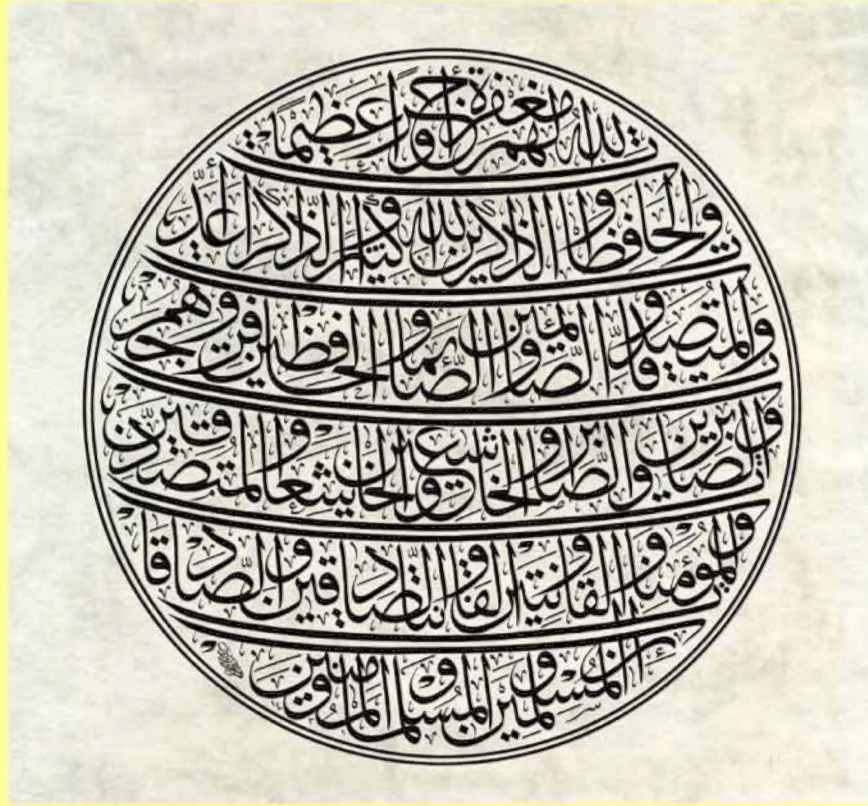 إن المسلمين والمسلمات والمؤمنين
والمؤمنات والقانتين والقانتات والصادقين والصادقات
والصابرين والصابرات والخاشعين والخاشعات والمتصدقين
والمتصدقات والصائمين والصائمات والحافظين فروجهم
والحافظات والذاكرين الله كثيرا والذاكرات أعد
الله لهم مغفرة وأجرا عظيما